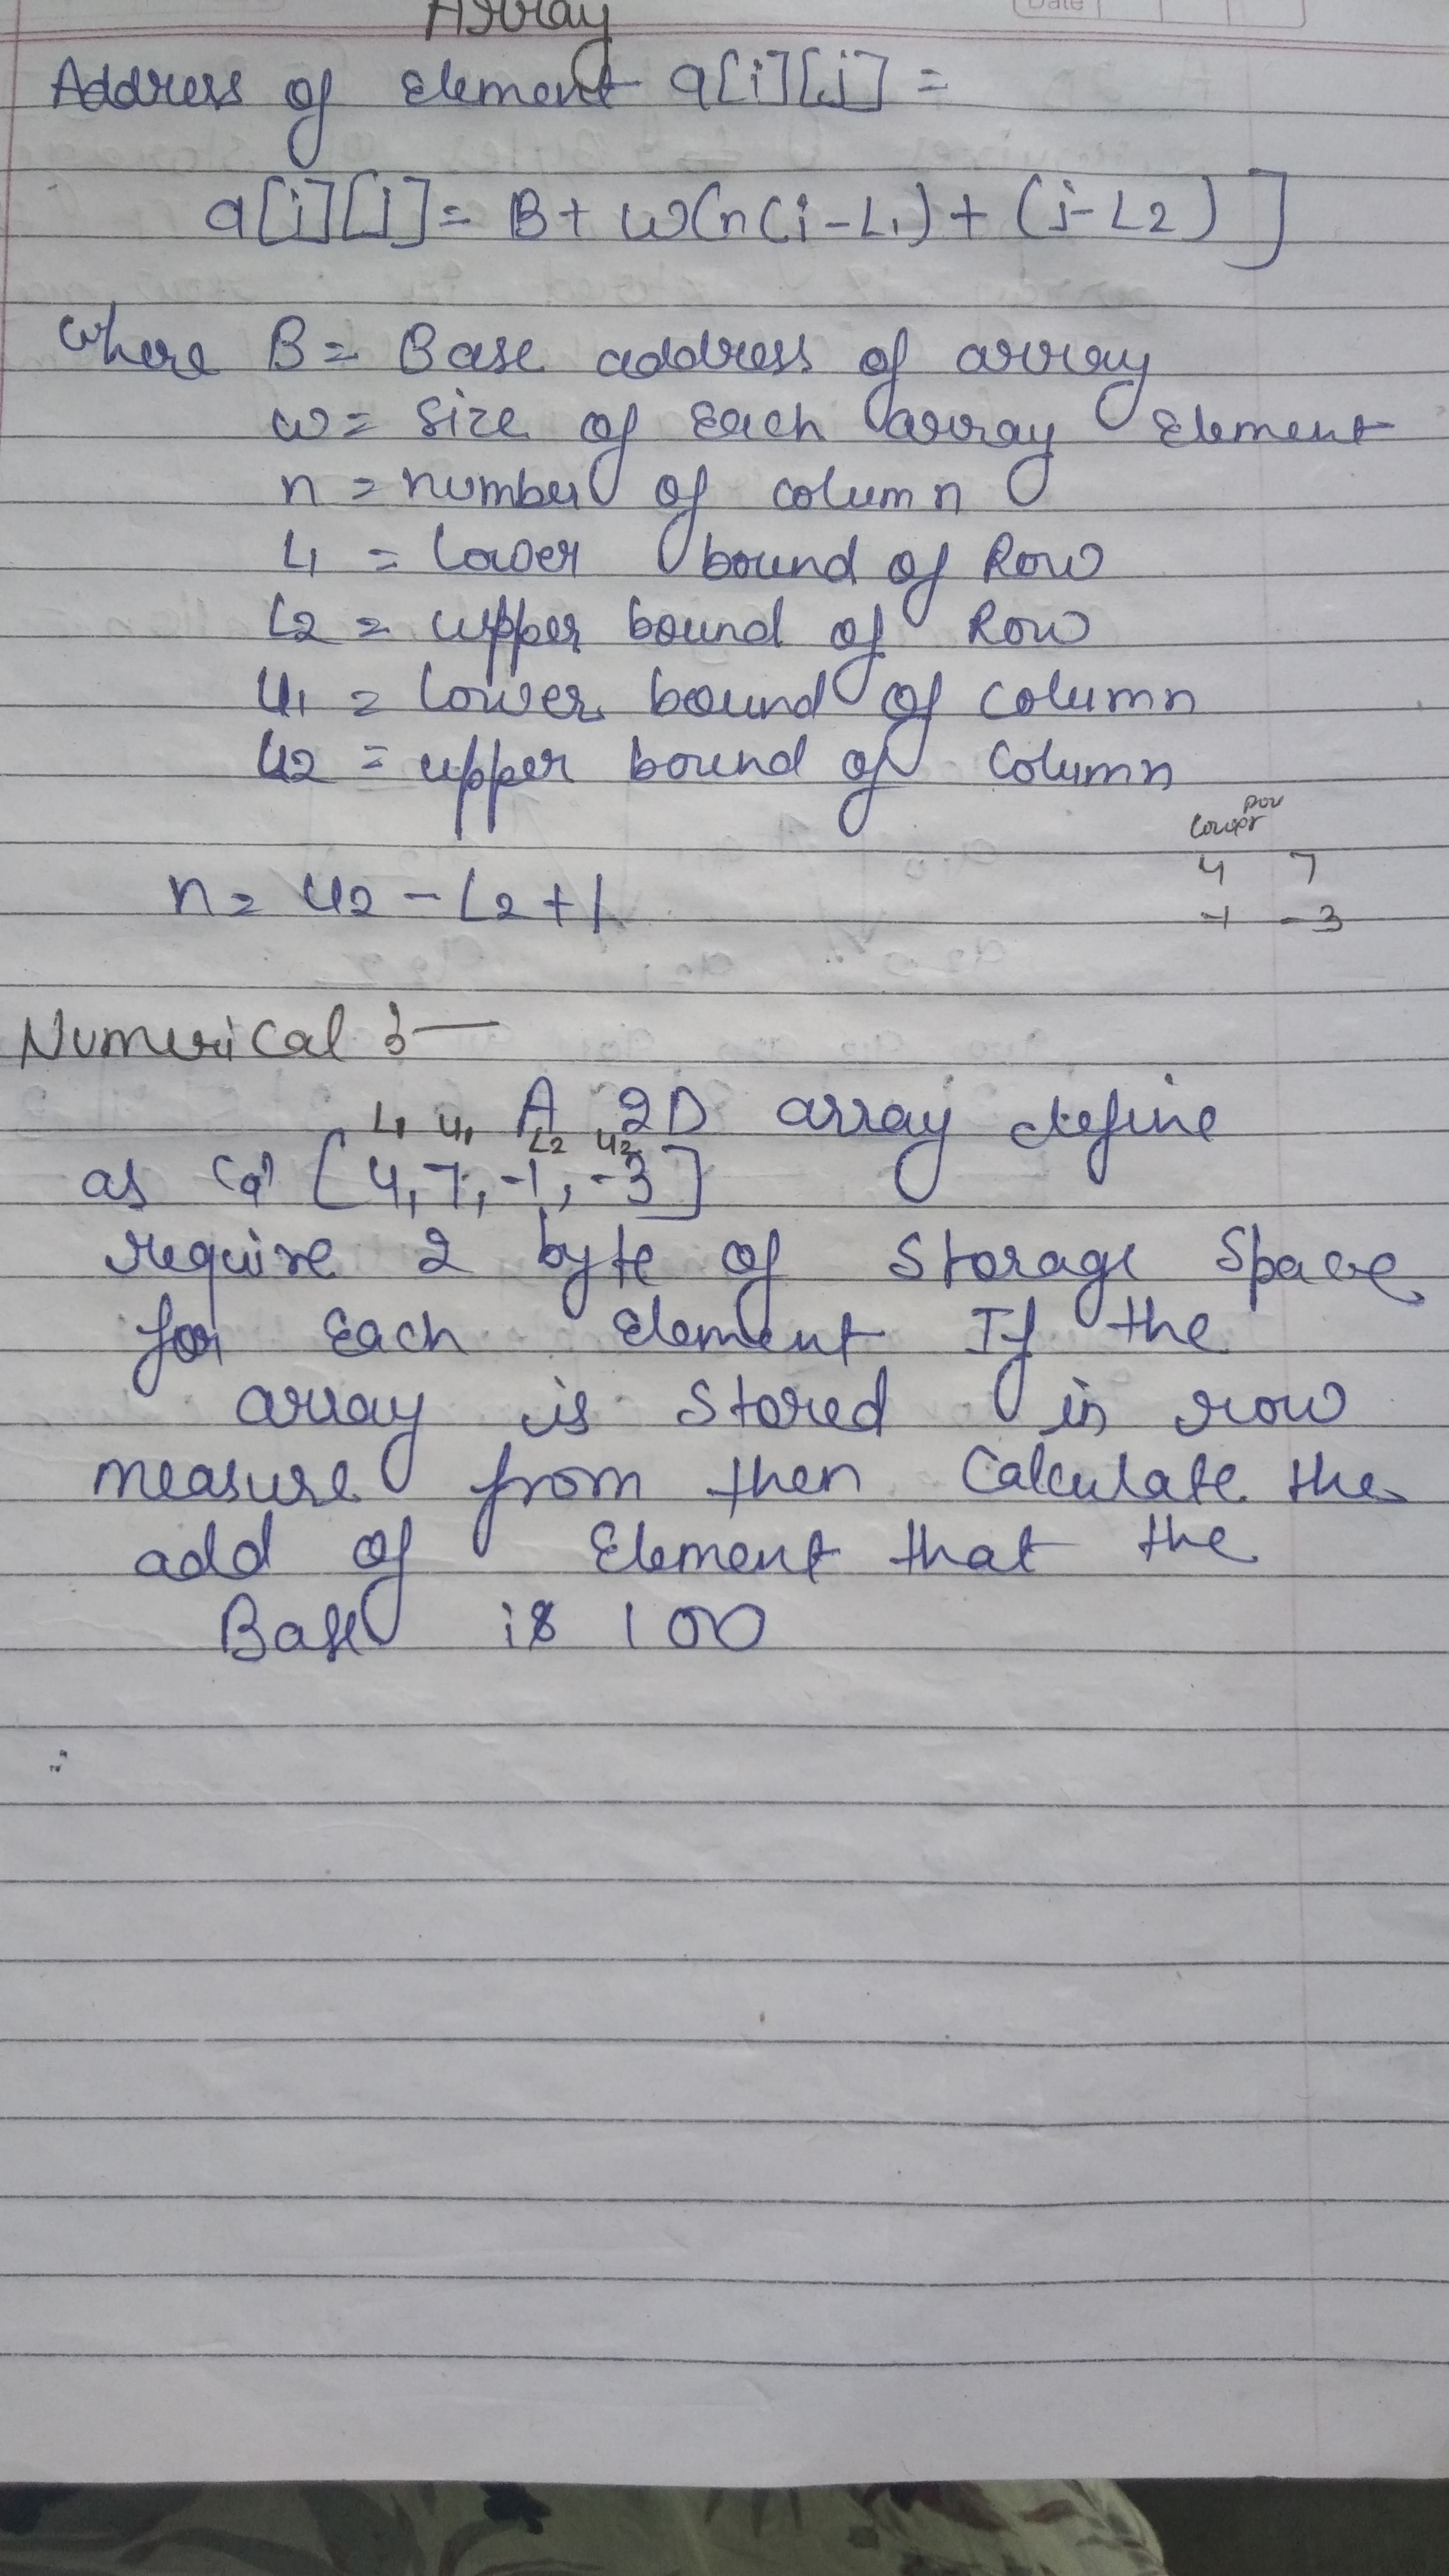 Array
Date
Address of Element a[i][j] =
a[i][j] = B + w(n(i-L1) + (j-L2) ]
where B = Base address of array
w = size of Each array Element
n = number of column
L1 = lower bound of Row
L2 = upper bound of Row
U1 = lower bound of column
U2 = upper bound of column
Lower
n = U2 - L2 + 1
4 7
-1 -3
Numerical :-
A 2D array define
L1 U1 L2 U2
as 'a' [4, 7, -1, -3]
require 2 byte of Storage Space
for Each Element If the
array is Stored in row
measure from then Calculate the
add of Element that the
Base is 100